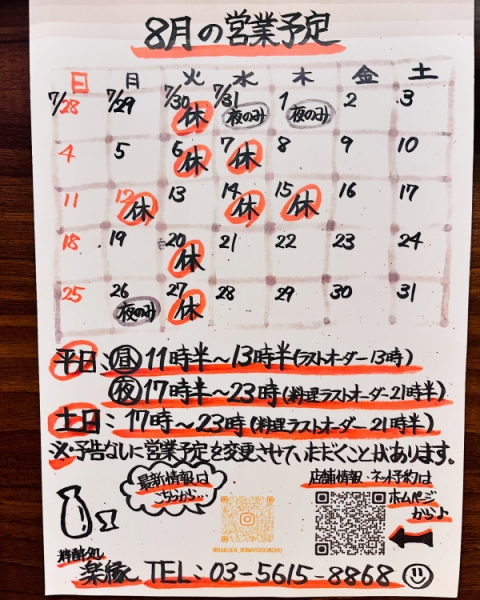 8月の営業予定
日 月 火 水 木 金 土
7/28 7/29 7/30 休 7/31 夜のみ 1 夜のみ 2 3
4 5 6 休 7 休 8 9 10
11 12 休 13 14 休 15 休 16 17
18 19 20 休 21 22 23 24
25 26 夜のみ 27 休 28 29 30 31
平日:昼11時半〜13時半(ラストオーダー13時)
夜17時半〜23時(料理ラストオーダー21時半)
土日:17時〜23時(料理ラストオーダー21時半)
※・予告なしに営業予定を変更させていただくことがあります。
最新情報は
こちらから…
店舗情報・ネット予約は
ホームページ
から♪
料酔処
楽縁 TEL:03-5615-8868